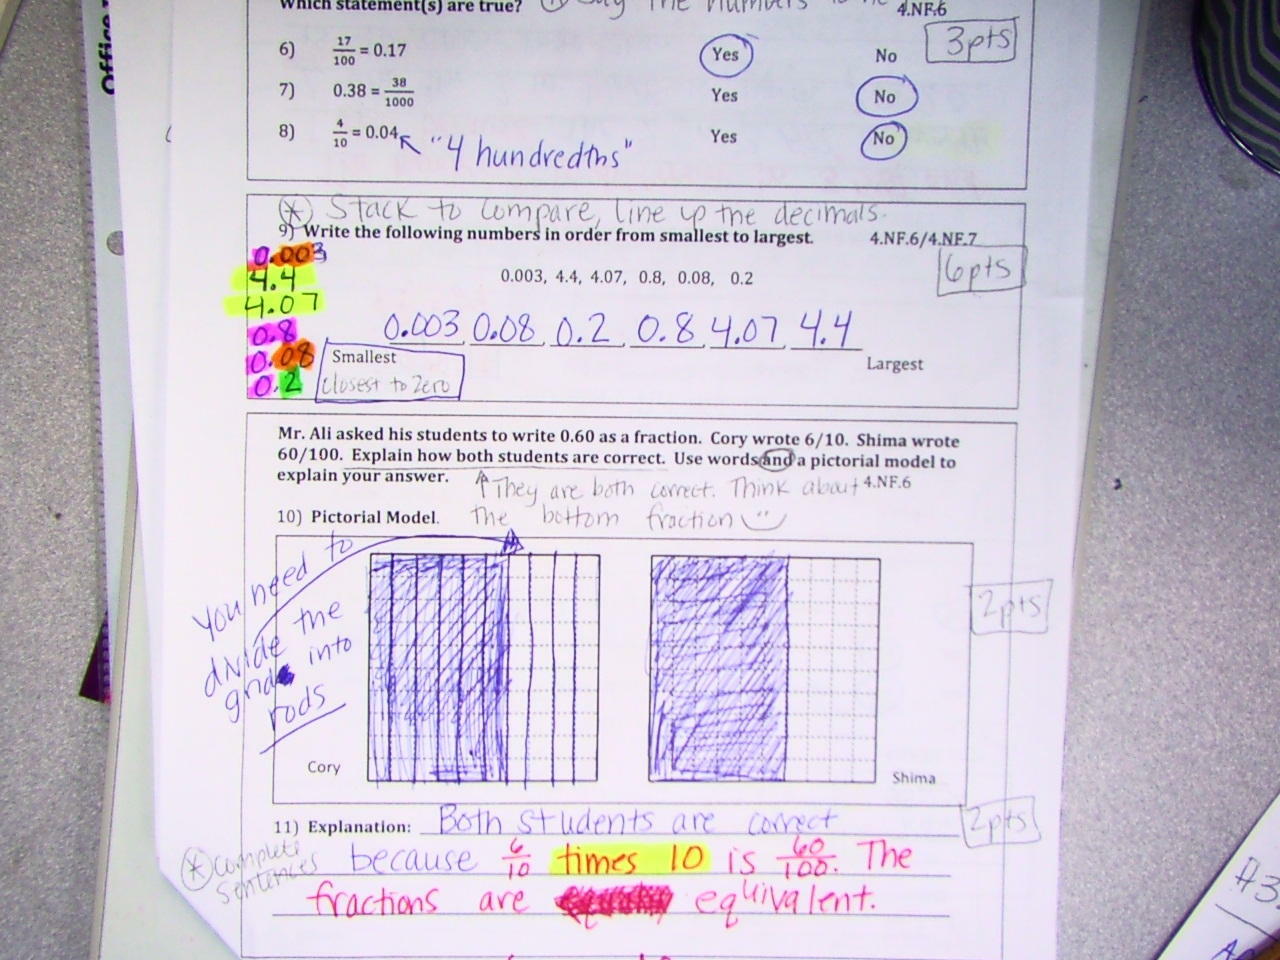 Office
Which statement(s) are true? Say the numbers
4.NF.6
3pts
6) 17/100 = 0.17 Yes No
7) 0.38 = 38/1000 Yes No
8) 4/10 = 0.04 "4 hundredths" Yes No
* Stack to compare, line up the decimals.
9) Write the following numbers in order from smallest to largest. 4.NF.6/4.NF.7
6pts
0.003
4.4
4.07
0.8
0.08
0.2
0.003, 4.4, 4.07, 0.8, 0.08, 0.2
0.003 0.08 0.2 0.8 4.07 4.4
Smallest Largest
closest to zero
Mr. Ali asked his students to write 0.60 as a fraction. Cory wrote 6/10. Shima wrote
60/100. Explain how both students are correct. Use words and a pictorial model to
explain your answer. They are both correct. Think about 4.NF.6
10) Pictorial Model. The bottom fraction
You need to
divide the
grid into
rods
2pts
Cory Shima
11) Explanation: Both students are correct
2pts
* complete
sentences
because 6/10 times 10 is 60/100. The
fractions are equivalent.